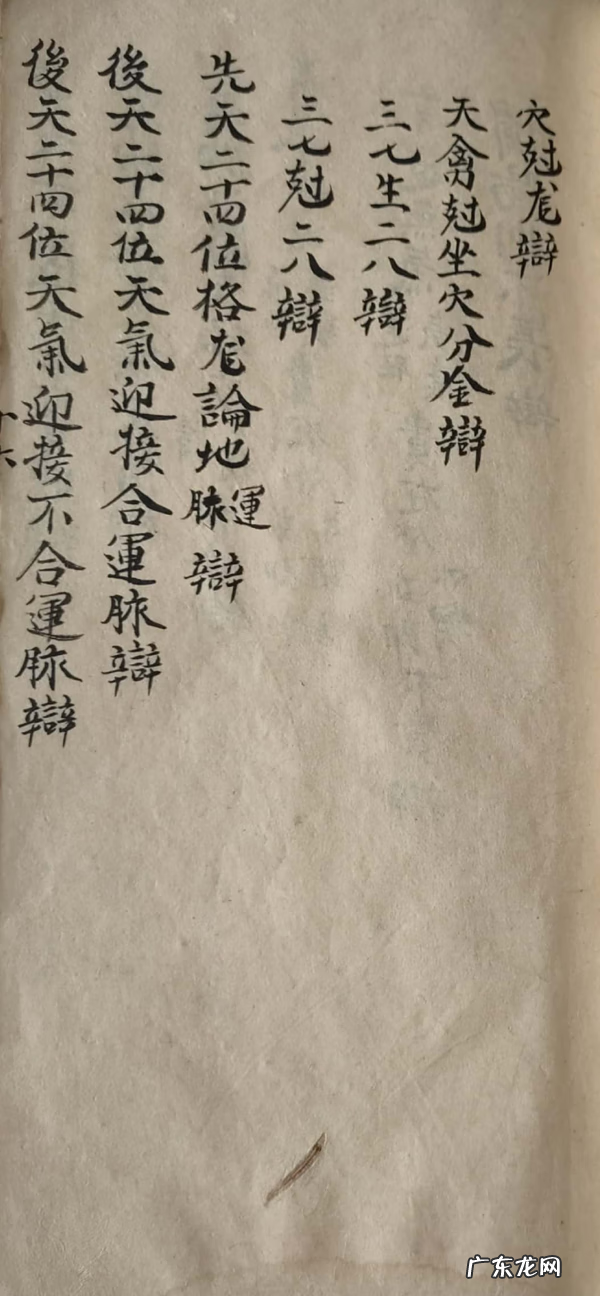 穴尅龙辯
天禽尅坐穴分金辯
三七生二八辯
三七尅二八辯
先天二十四位格龙論地運脉辯
後天二十四位天氣迎接合運脉辯
後天二十四位天氣迎接不合運脉辯
十六
广东龙网